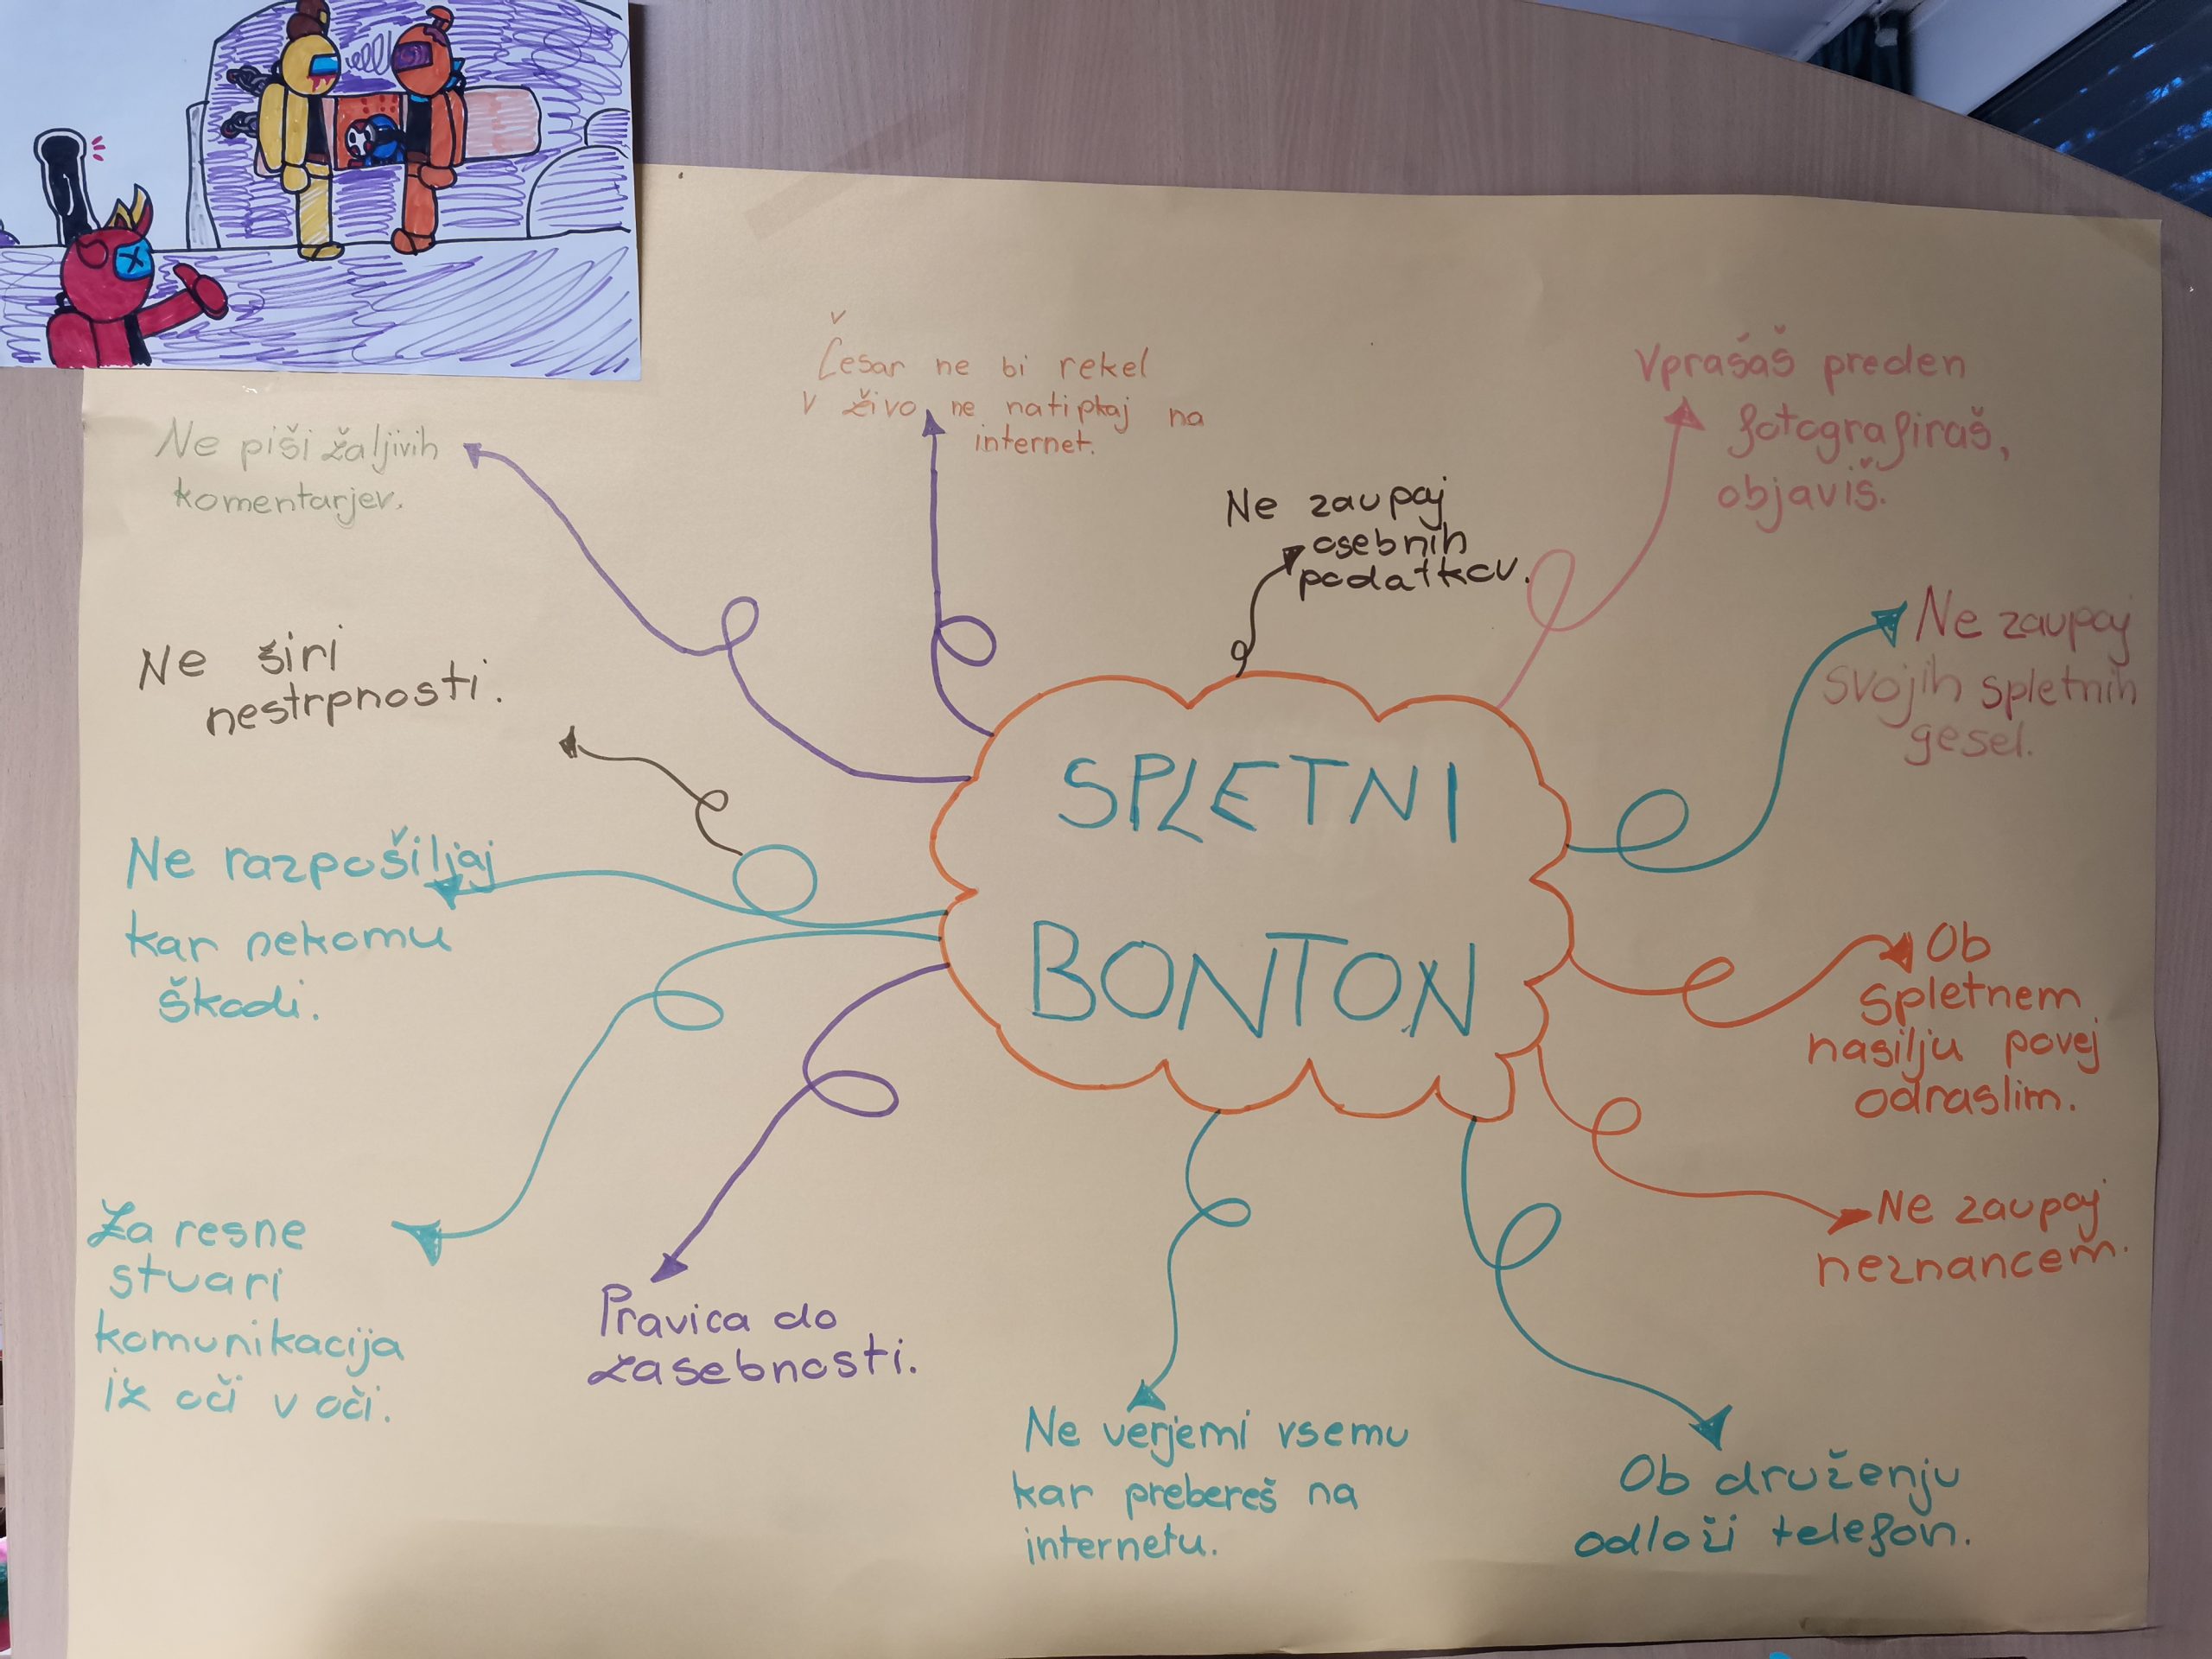 SPLETNI
BONTON
Ne piši žaljivih
komentarjev.
Česar ne bi rekel
v živo ne natipkaj na
internet.
Ne zaupaj
osebnih
podatkov.
Vprašaš preden
fotografiraš,
objaviš.
Ne zaupaj
svojih spletnih
gesel.
Ob
spletnem
nasilju povej
odraslim.
Ne zaupaj
neznancem.
Ob druženju
odloži telefon.
Ne verjemi vsemu
kar prebereš na
internetu.
Pravica do
zasebnosti.
Za resne
stvari
komunikacija
iz oči v oči.
Ne razpošiljaj
kar nekomu
škodi.
Ne širi
nestrpnosti.